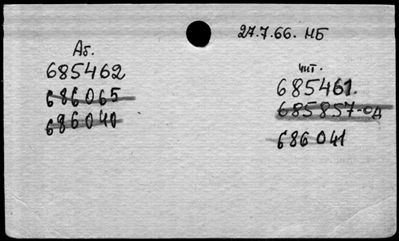 27.7.66. НБ
Аб.
685462
686065
686040
чит.
685461.
685857-од
686041